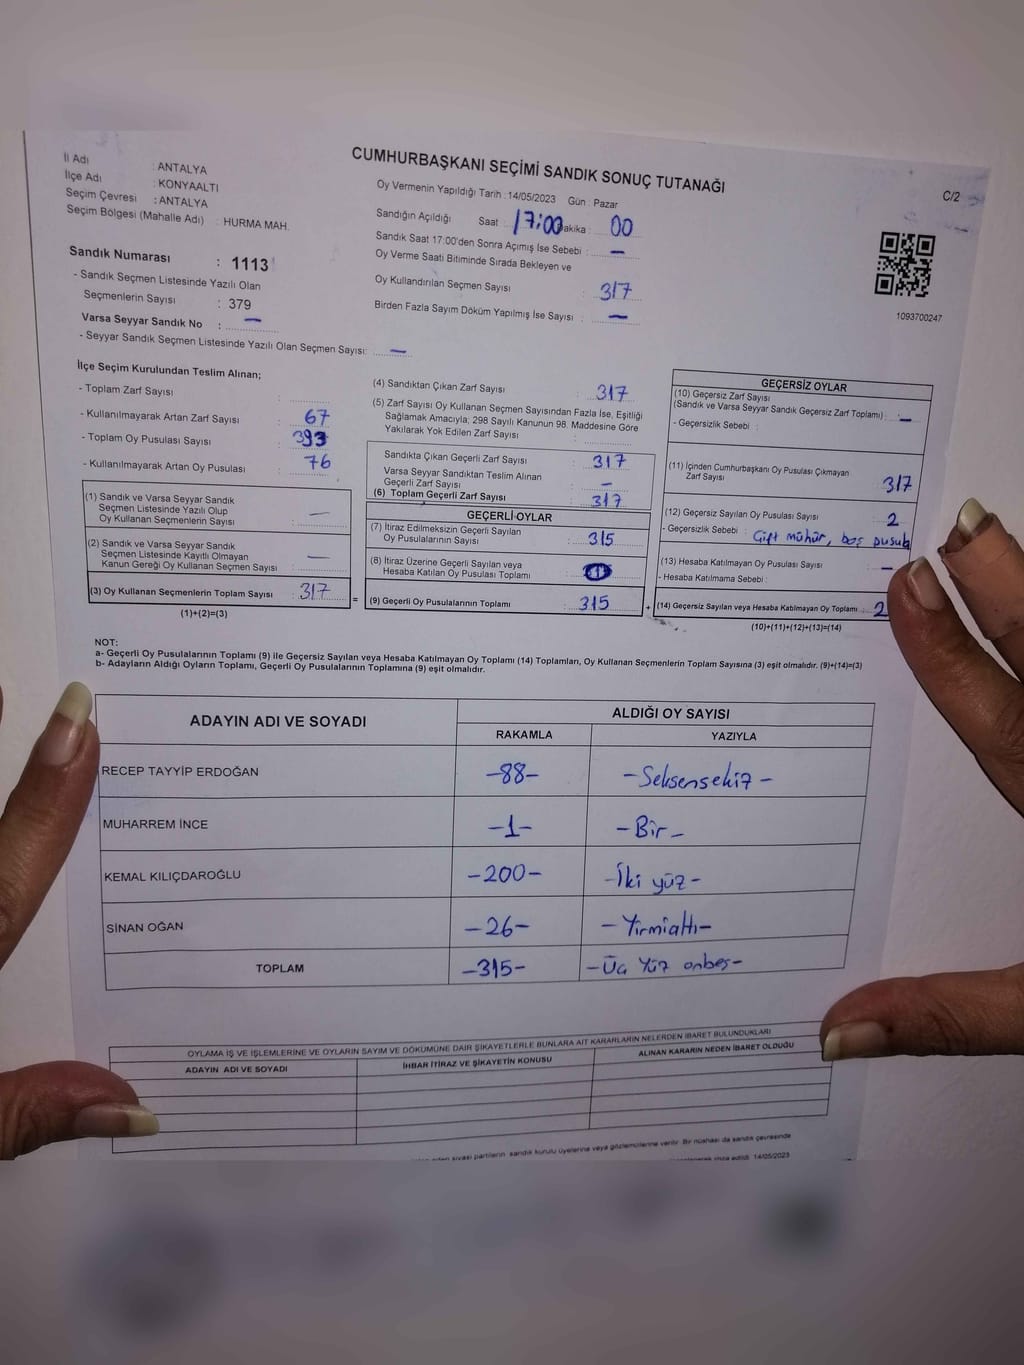 CUMHURBAŞKANI SEÇİMİ SANDIK SONUÇ TUTANAĞI
C/2
İl Adı : ANTALYA
İlçe Adı : KONYAALTI
Seçim Çevresi : ANTALYA
Seçim Bölgesi (Mahalle Adı) : HURMA MAH.
Sandık Numarası : 1113
- Sandık Seçmen Listesinde Yazılı Olan
Seçmenlerin Sayısı : 379
Varsa Seyyar Sandık No : —
- Seyyar Sandık Seçmen Listesinde Yazılı Olan Seçmen Sayısı: —
Oy Vermenin Yapıldığı Tarih : 14/05/2023 Gün : Pazar
Sandığın Açıldığı Saat 17:00 Dakika : 00
Sandık Saat 17:00'den Sonra Açımış İse Sebebi : —
Oy Verme Saati Bitiminde Sırada Bekleyen ve
Oy Kullandırılan Seçmen Sayısı : 317
Birden Fazla Sayım Döküm Yapılmış İse Sayısı : —
1093700247
İlçe Seçim Kurulundan Teslim Alınan;
- Toplam Zarf Sayısı :
- Kullanılmayarak Artan Zarf Sayısı : 67
- Toplam Oy Pusulası Sayısı : 393
- Kullanılmayarak Artan Oy Pusulası : 76
(1) Sandık ve Varsa Seyyar Sandık
Seçmen Listesinde Yazılı Olup
Oy Kullanan Seçmenlerin Sayısı : —
(2) Sandık ve Varsa Seyyar Sandık
Seçmen Listesinde Kayıtlı Olmayan
Kanun Gereği Oy Kullanan Seçmen Sayısı : —
(3) Oy Kullanan Seçmenlerin Toplam Sayısı : 317
(1)+(2)=(3)
(4) Sandıktan Çıkan Zarf Sayısı : 317
(5) Zarf Sayısı Oy Kullanan Seçmen Sayısından Fazla İse, Eşitliği
Sağlamak Amacıyla; 298 Sayılı Kanunun 98. Maddesine Göre
Yakılarak Yok Edilen Zarf Sayısı :
Sandıkta Çıkan Geçerli Zarf Sayısı : 317
Varsa Seyyar Sandıktan Teslim Alınan
Geçerli Zarf Sayısı : —
(6) Toplam Geçerli Zarf Sayısı : 317
GEÇERLİ OYLAR
(7) İtiraz Edilmeksizin Geçerli Sayılan
Oy Pusulalarının Sayısı : 315
(8) İtiraz Üzerine Geçerli Sayılan veya
Hesaba Katılan Oy Pusulası Toplamı :
= (9) Geçerli Oy Pusulalarının Toplamı : 315
GEÇERSİZ OYLAR
(10) Geçersiz Zarf Sayısı
(Sandık ve Varsa Seyyar Sandık Geçersiz Zarf Toplamı) : —
- Geçersizlik Sebebi :
(11) İçinden Cumhurbaşkanı Oy Pusulası Çıkmayan
Zarf Sayısı 317
(12) Geçersiz Sayılan Oy Pusulası Sayısı : 2
- Geçersizlik Sebebi : Çift mühür, boş pusula
(13) Hesaba Katılmayan Oy Pusulası Sayısı : —
- Hesaba Katılmama Sebebi :
+ (14) Geçersiz Sayılan veya Hesaba Katılmayan Oy Toplamı : 2
(10)+(11)+(12)+(13)=(14)
NOT:
a- Geçerli Oy Pusulalarının Toplamı (9) ile Geçersiz Sayılan veya Hesaba Katılmayan Oy Toplamı (14) Toplamları, Oy Kullanan Seçmenlerin Toplam Sayısına (3) eşit olmalıdır. (9)+(14)=(3)
b- Adayların Aldığı Oyların Toplamı, Geçerli Oy Pusulalarının Toplamına (9) eşit olmalıdır.
ADAYIN ADI VE SOYADI ALDIĞI OY SAYISI
RAKAMLA YAZIYLA
RECEP TAYYİP ERDOĞAN -88- -Seksensekiz-
MUHARREM İNCE -1- -Bir-
KEMAL KILIÇDAROĞLU -200- -İki yüz-
SİNAN OĞAN -26- -Yirmialtı-
TOPLAM -315- -Üç Yüz onbeş-
OYLAMA İŞ VE İŞLEMLERİNE VE OYLARIN SAYIM VE DÖKÜMÜNE DAİR ŞİKAYETLERLE BUNLARA AİT KARARLARIN NELERDEN İBARET BULUNDUKLARI
ADAYIN ADI VE SOYADI İHBAR İTİRAZ VE ŞİKAYETİN KONUSU ALINAN KARARIN NEDEN İBARET OLDUĞU
siyasi partilerin sandık kurulu üyelerine veya gözlemcilerine verilir. Bir nüshası da sandık çevresinde
imza edildi. 14/05/2023